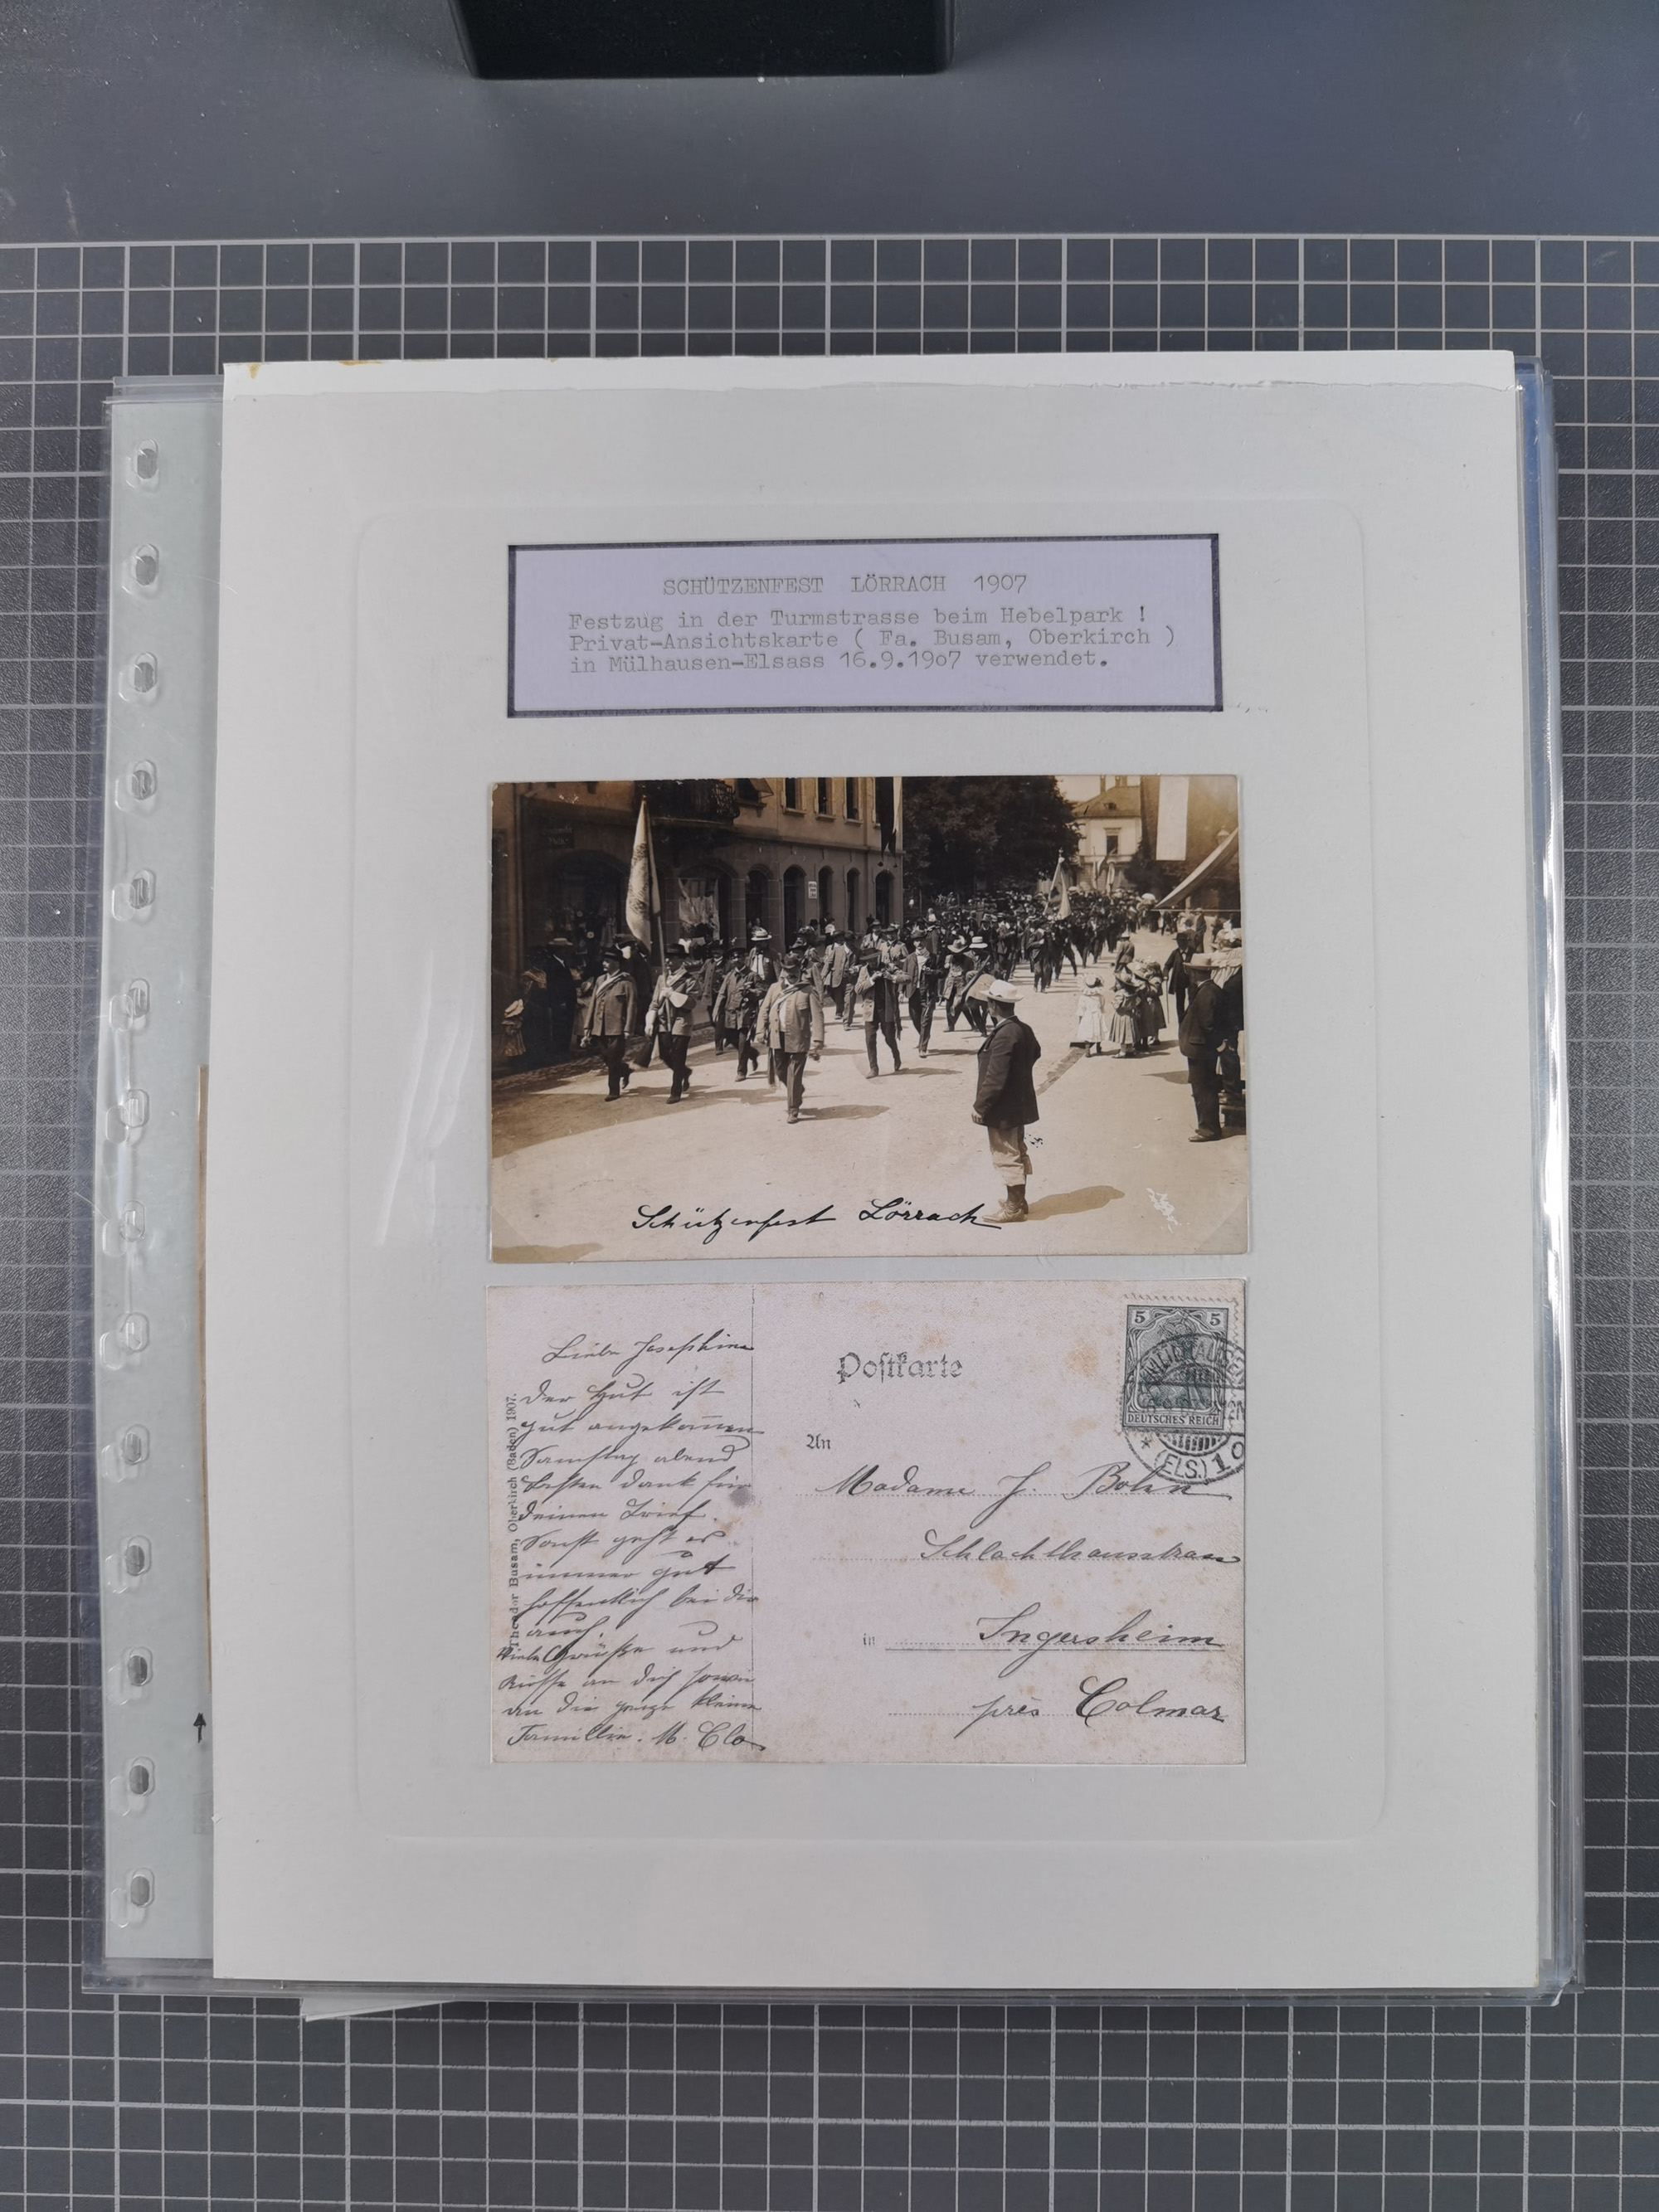 SCHÜTZENFEST LÖRRACH 1907
Festzug in der Turmstrasse beim Hebelpark !
Privat-Ansichtskarte ( Fa. Busam, Oberkirch )
in Mülhausen-Elsass 16.9.19o7 verwendet.
Schützenfest Lörrach
Liebe Josephine
Der Hut ist
gut angekom̅en
Samstag abend
besten Dank für
deinen Brief.
Sonst geht es
immer gut
hoffentlich bei dir
auch.
Viele Grüße und
Küsse an dich sowie
an die ganze kleine
Familie. M. Clo
Theodor Busam, Oberkirch (Baden) 1907.
Postkarte
5 5
DEUTSCHES REICH
(ELS.) 10
An
Madame J. Bohn
Schlachthausstrasse
in Ingersheim
près Colmar